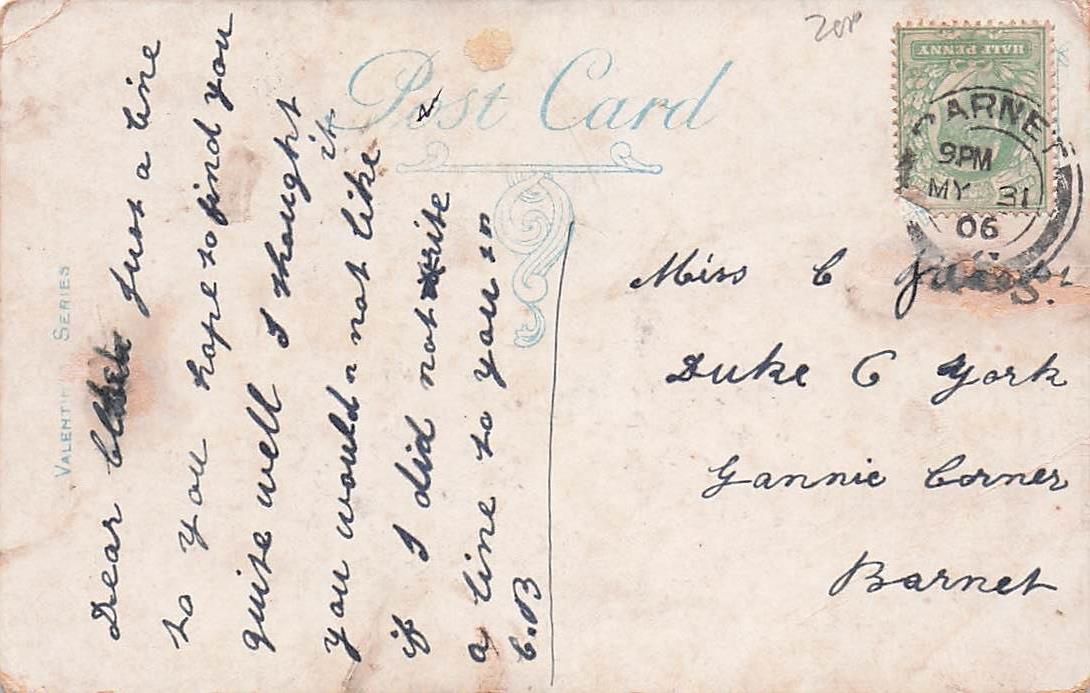 Post Card
VALENTINE SERIES
HALF PENNY
BARNET
9.PM
MY 31
06
Dear Just a line
to you hope to find you
quite well I thought
you would not like it
if I did not write
a line to you
C.B
Miss C
Duke C York
Gannie Corner
Barnet